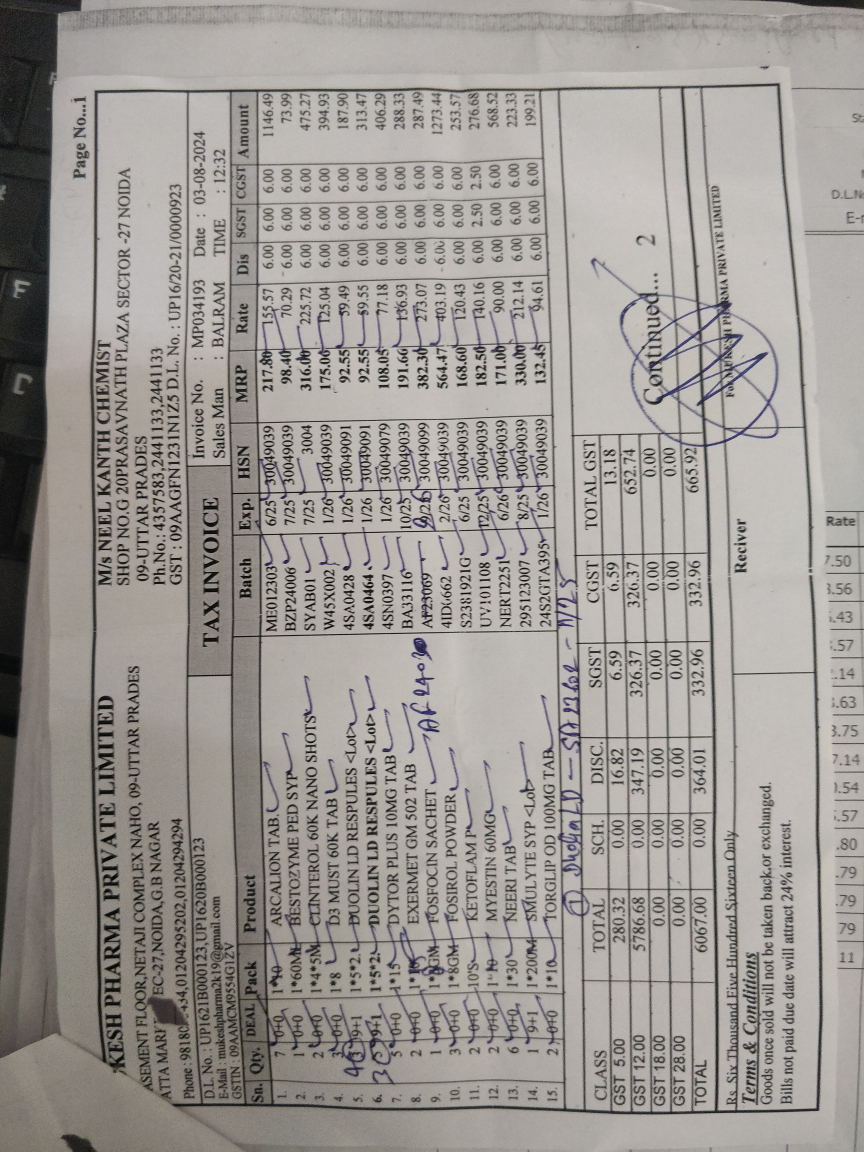 Page No...1
KESH PHARMA PRIVATE LIMITED
ASEMENT FLOOR,NETAJI COMPLEX NAHO, 09-UTTAR PRADES
EC-27,NOIDA,G.B NAGAR
Phone: 01204295202,01204294294
D.L. No. : UP1621B000123,UP1620B000123
E-Mail : mukeshpharma2k19@gmail.com
GSTIN : 09AAMCM9554G1ZV
M/s NEEL KANTH CHEMIST
SHOP NO,G 20PRASAVNATH PLAZA SECTOR -27 NOIDA
09-UTTAR PRADES
Ph.No.: 4357583,2441133,2441133
GST : 09AAGFN1231N1Z5 D.L. No. : UP16/20-21/0000923
TAX INVOICE
Invoice No. : MP034193 Date : 03-08-2024
Sales Man : BALRAM TIME : 12:32
Sn. Qty. DEAL Pack Product Batch Exp. HSN MRP Rate Dis SGST CGST Amount
1. 7 0+0 1*10 ARCALION TAB. ME012303 6/25 30049039 217.80 155.57 6.00 6.00 6.00 1146.49
2. 1 0+0 1*60ML BESTOZYME PED SYP BZP24006 7/25 30049039 98.40 70.29 6.00 6.00 6.00 73.99
3. 2 0+0 1*4*5M CLINTEROL 60K NANO SHOTS SYAB01 7/25 3004 316.00 225.72 6.00 6.00 6.00 475.27
4. 3 0+0 1*8 D3 MUST 60K TAB W45X002 1/26 30049039 175.06 125.04 6.00 6.00 6.00 394.93
5. 9+1 1*5*2. DUOLIN LD RESPULES <Lot> 4SA0428 1/26 30049091 92.55 59.49 6.00 6.00 6.00 187.90
6. 9+1 1*5*2. DUOLIN LD RESPULES <Lot> 4SA0464 1/26 30049091 92.55 59.55 6.00 6.00 6.00 313.47
7. 5 0+0 1*15 DYTOR PLUS 10MG TAB 4SN0397 1/26 30049079 108.05 77.18 6.00 6.00 6.00 406.29
8. 2 0+0 EXERMET GM 502 TAB BA33116 10/25 30049039 191.66 136.93 6.00 6.00 6.00 288.33
9. 1 0+0 FOSFOCIN SACHET AF23069 30049099 382.30 273.07 6.00 6.00 6.00 287.49
10. 3 0+0 1*8GM FOSIROL POWDER 4ID6662 2/26 30049039 564.47 403.19 6.00 6.00 6.00 1273.44
11. 2 0+0 10'S KETOFLAM P S2381921G 6/25 30049039 168.60 120.43 6.00 6.00 6.00 253.57
12. 2 0+0 MYESTIN 60MG UV101108 12/25 30049039 182.50 140.16 6.00 2.50 2.50 276.68
13. 6 0+0 1*30 NEERI TAB NERT2251 6/26 30049039 171.00 90.00 6.00 6.00 6.00 568.52
14. 1 9+1 1*200M SMULYTE SYP <Lot> 295123007 8/25 30049039 330.00 212.14 6.00 6.00 6.00 223.33
15. 2 0+0 1*10 TORGLIP OD 100MG TAB 24S2GTA395 1/26 30049039 132.45 94.61 6.00 6.00 6.00 199.21
CLASS TOTAL SCH. DISC. SGST CGST TOTAL GST
GST 5.00 280.32 0.00 16.82 6.59 6.59 13.18
GST 12.00 5786.68 0.00 347.19 326.37 326.37 652.74
GST 18.00 0.00 0.00 0.00 0.00 0.00 0.00
GST 28.00 0.00 0.00 0.00 0.00 0.00 0.00
TOTAL 6067.00 0.00 364.01 332.96 332.96 665.92
Continued... 2
Rs. Six Thousand Five Hundred Sixteen Only
Terms & Conditions
Goods once sold will not be taken back or exchanged.
Bills not paid due date will attract 24% interest.
Reciver
For MUKESH PHARMA PRIVATE LIMITED
D.L.No
Rate
7.50